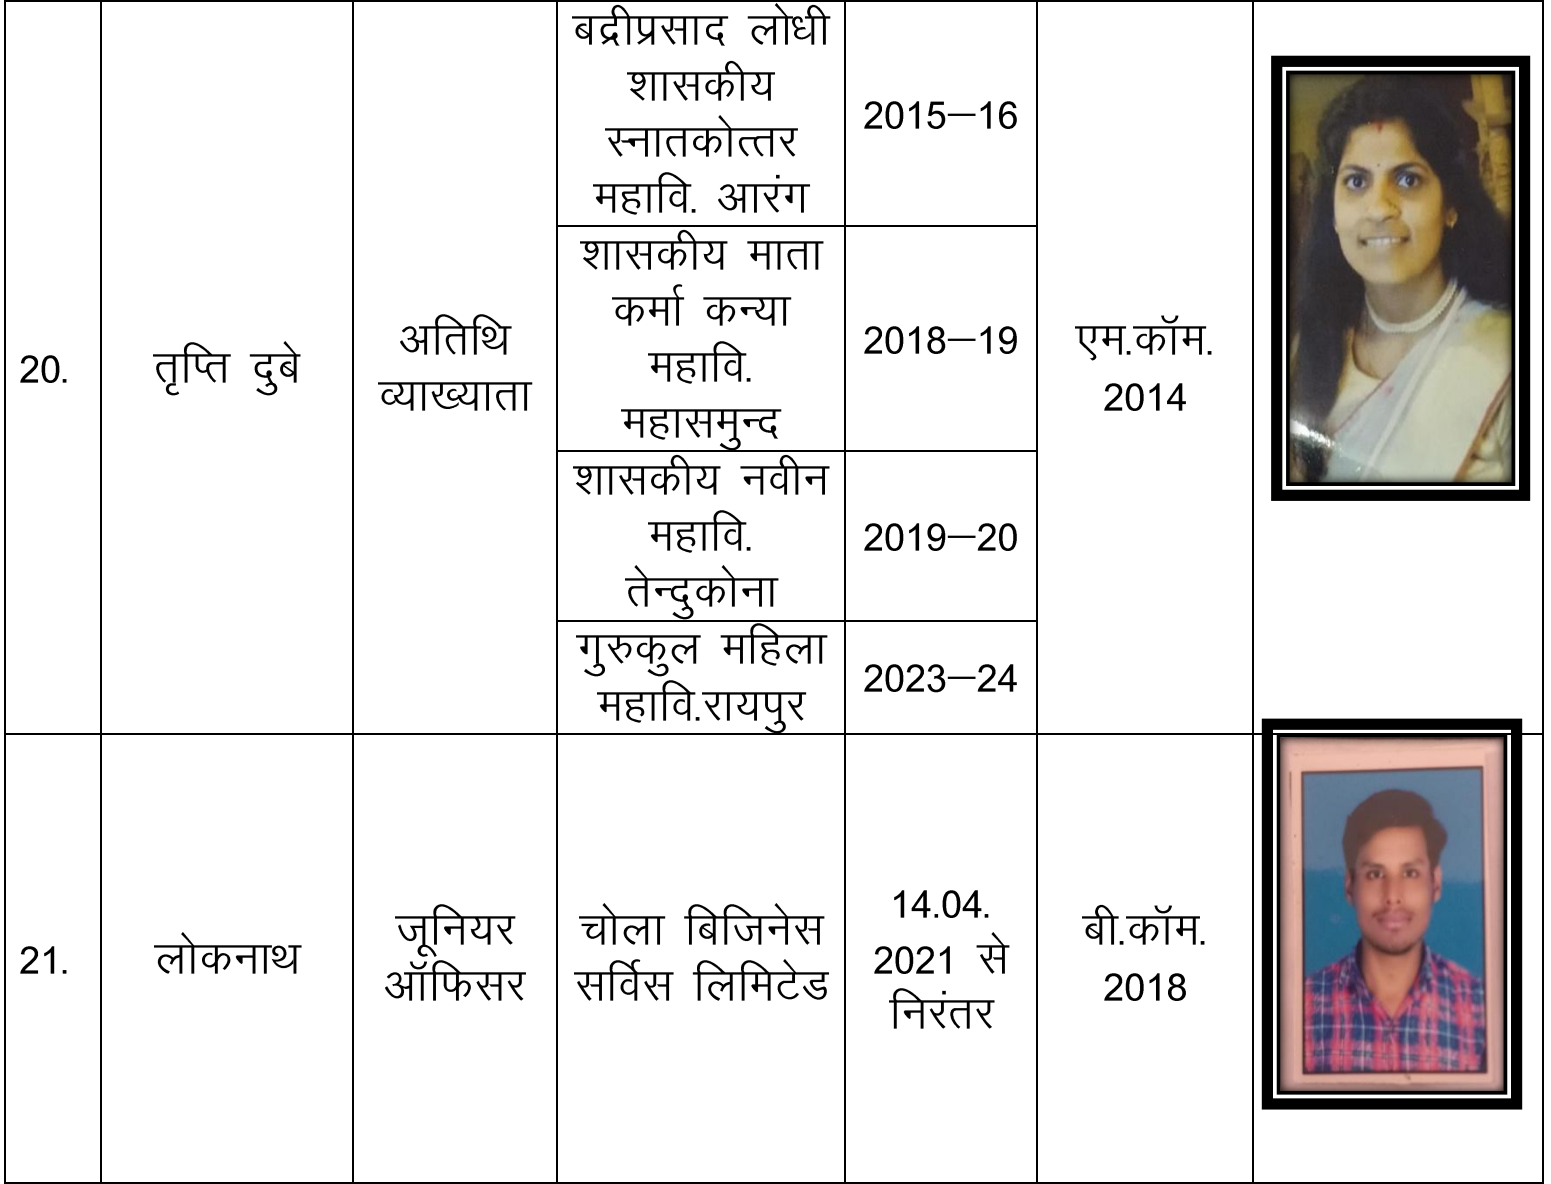 20.
तृप्ति दुबे
अतिथि
व्याख्याता
बद्रीप्रसाद लोधी
शासकीय
स्नातकोत्तर
महावि. आरंग
2015–16
शासकीय माता
कर्मा कन्या
महावि.
महासमुन्द
2018–19
शासकीय नवीन
महावि.
तेन्दुकोना
2019–20
गुरुकुल महिला
महावि.रायपुर
2023–24
एम.कॉम.
2014
21.
लोकनाथ
जूनियर
ऑफिसर
चोला बिजिनेस
सर्विस लिमिटेड
14.04.
2021 से
निरंतर
बी.कॉम.
2018